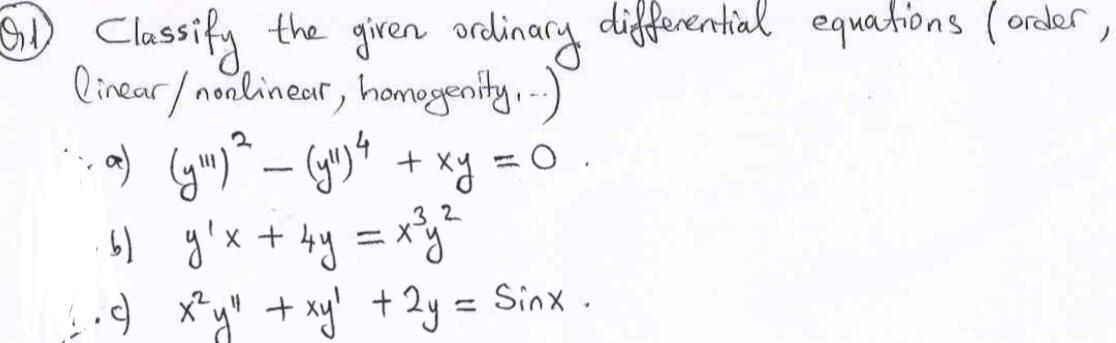 Q1) Classify the given ordinary differential equations (order,
linear/nonlinear, homogenity,...)
a) (y''')² - (y'')⁴ + xy = 0.
b) y'x + 4y = x³y²
c) x²y'' + xy' + 2y = Sinx.